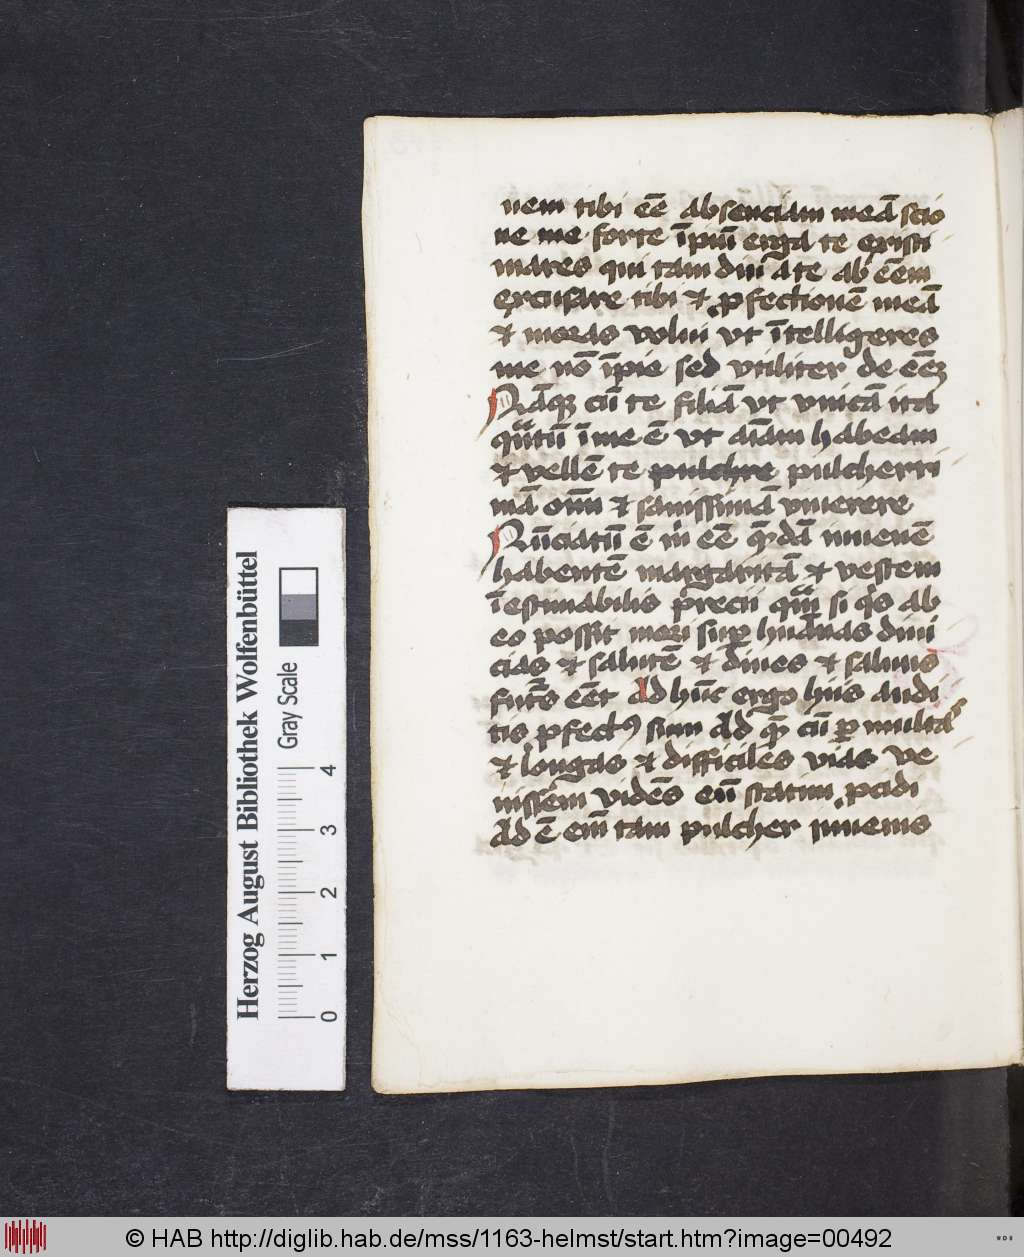 nem tibi eē absenciam meā scio
ne me forte īpiū erga te existi
mares qui tam diu a te ab eēm
excusare tibi et pfectionē meā
et moras volui vt ītelligeres
me nō īpie sed vtiliter de eēm
Nāqꝫ cū te filiā vt vnicā ita
qntū ī me ē vt aīam habeam
et vellē te pulchre pulcherri
mā oīm et sanissimā viuerere
Nūciatū ē m eē qdā iuuenē
habentē margaritā et vestem
īestimabilis precii qm si qs ab
eo possit mori supꝑ huānas diui
cias et salutē et diues et saluus
futs eēt Ad huc ergo huis audi
tis pfectꝰ sum Ad qm cū ꝑ multas
et longas et difficiles vias ve
nissem vidēs eū statim pcidi
Ad ē eī tam pulcher iuuenis
Herzog August Bibliothek Wolfenbüttel
Gray Scale
0 1 2 3 4
© HAB http://diglib.hab.de/mss/1163-helmst/start.htm?image=00492